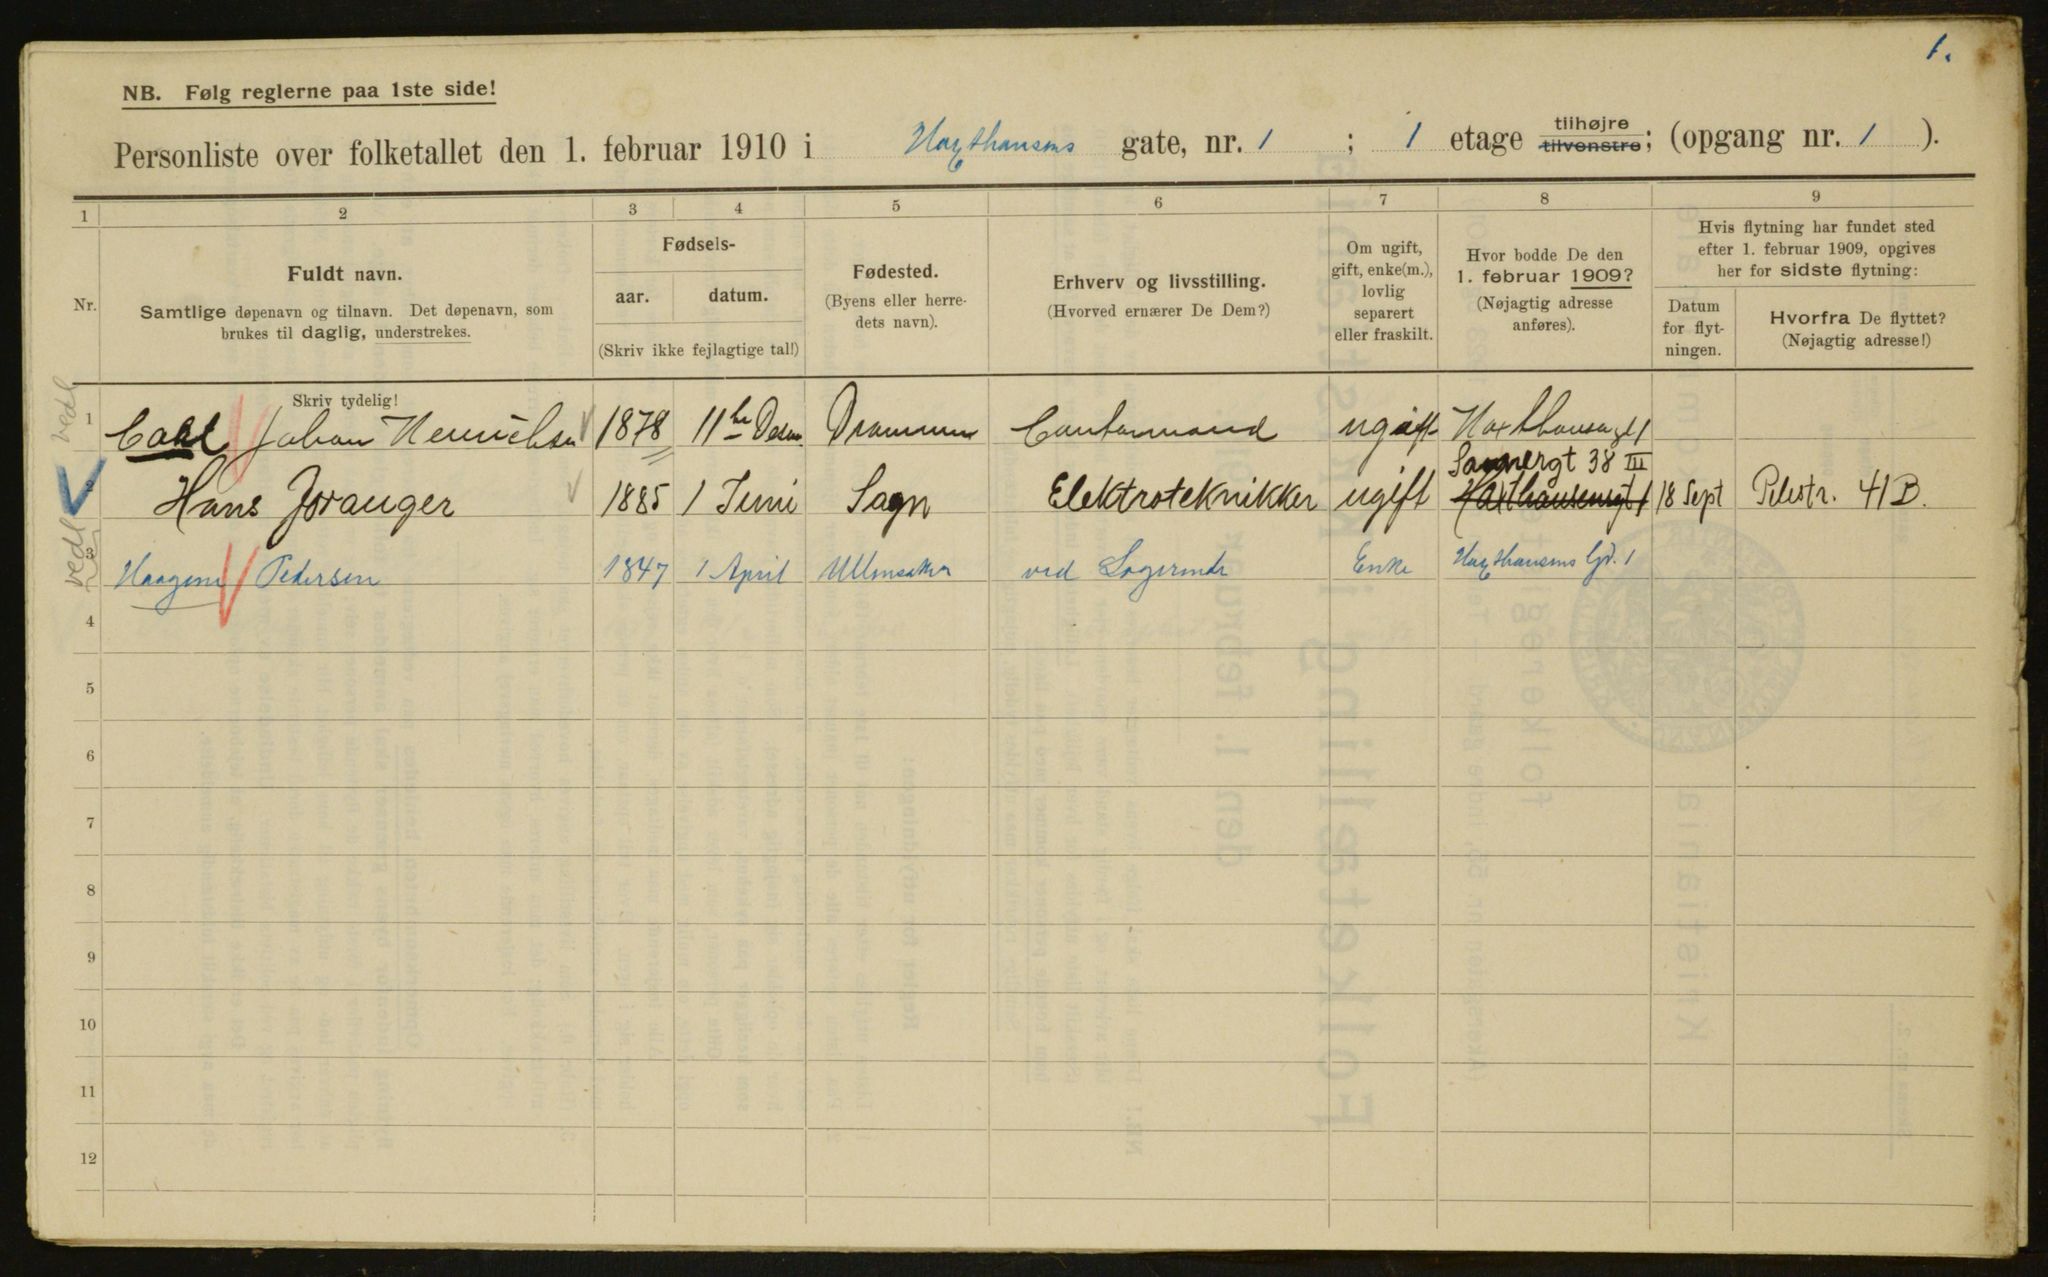 1.
NB. Følg reglerne paa 1ste side!
Personliste over folketallet den 1. februar 1910 i Haxthausens gate, nr. 1 ; 1 etage tilhøjre tilvenstre; (opgang nr. 1 ).
1 2 3 4 5 6 7 8 9
Nr.
Fuldt navn.
Samtlige døpenavn og tilnavn. Det døpenavn, som
brukes til daglig, understrekes.
Skriv tydelig!
Fødsels-
aar. datum.
(Skriv ikke fejlagtige tal!)
Fødested.
(Byens eller herre-
dets navn).
Erhverv og livsstilling.
(Hvorved ernærer De Dem?)
Om ugift,
gift, enke(m.),
lovlig
separert
eller fraskilt.
Hvor bodde De den
1. februar 1909?
(Nøjagtig adresse
anføres).
Hvis flytning har fundet sted
efter 1. februar 1909, opgives
her for sidste flytning:
Datum
for flyt-
ningen.
Hvorfra De flyttet?
(Nøjagtig adresse!)
vedl
1 Carl Johan Henrichsen 1878 11te Desem. Drammen Contormand ugift Haxthausgt 1
2 Hans Joranger 1885 1 Juni Sogn Elektrotekniker ugift Sognergt 38 III Haxthausensgt 1 18 Sept Pilestr. 41B.
vedl
3 Haagine Pedersen 1847 1 April Ullensaker ved Logerende Enke Haxthausens Gd. 1
4
5
6
7
8
9
10
11
12